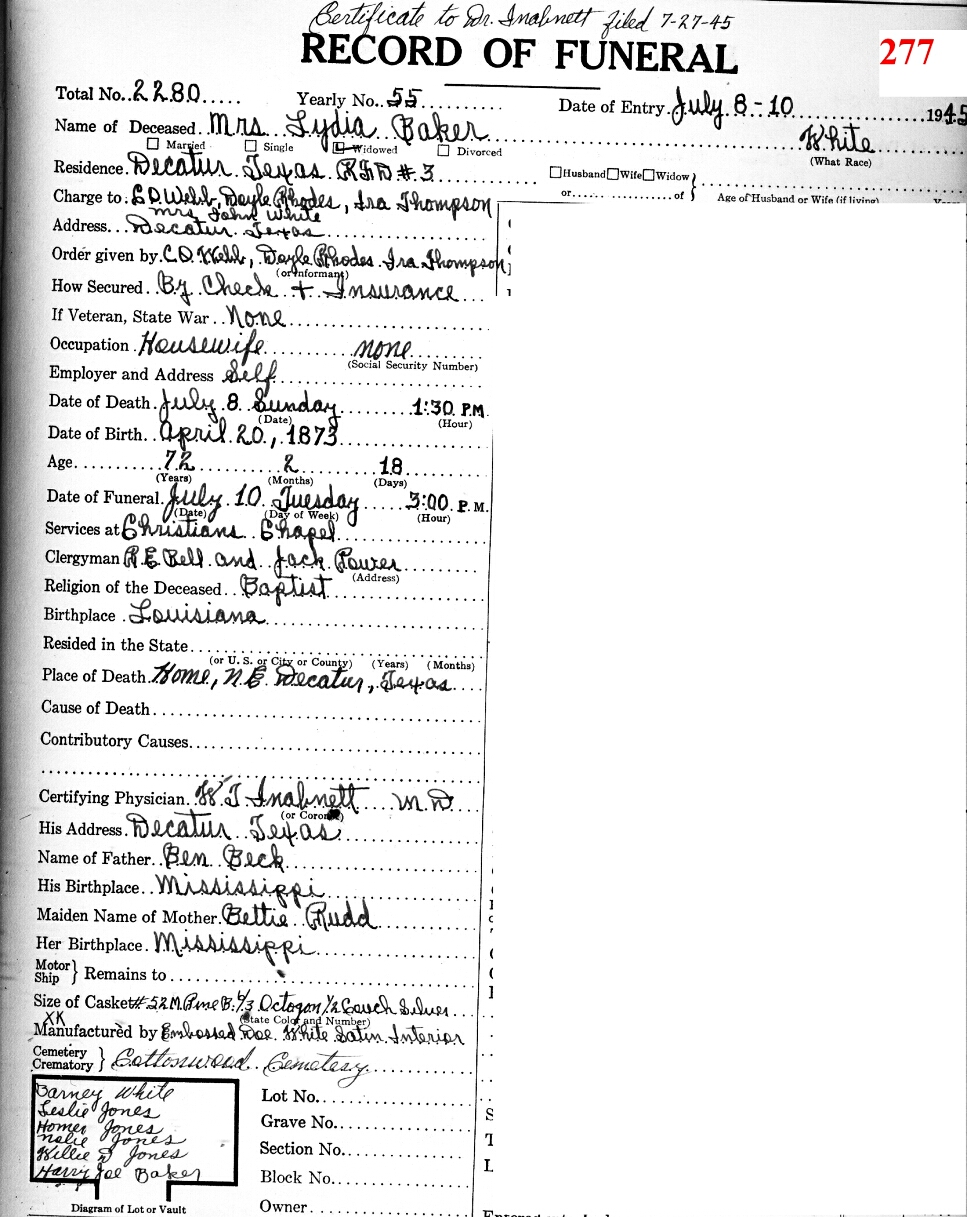 Certificate to Dr. Inabnett filed 7-27-45
RECORD OF FUNERAL
277
Total No. 2280 Yearly No. 55 Date of Entry July 8-10 1945
Name of Deceased Mrs. Lydia Baker White
☐ Married ☐ Single ☐ Widowed ☐ Divorced (What Race)
Residence Decatur Texas RFD #3 ☐Husband☐Wife☐Widow
or of Age of Husband or Wife (if living)
Charge to: C.D. Webb, Doyle Rhodes, Ira Thompson
Mrs. John White
Address Decatur Texas
Order given by C.D. Webb, Doyle Rhodes. Ira Thompson
(or Informant)
How Secured By Check + Insurance
If Veteran, State War None
Occupation Housewife none
(Social Security Number)
Employer and Address Self
Date of Death July 8 Sunday 1:30 P.M.
(Date) (Hour)
Date of Birth April 20, 1873
Age 72 2 18
(Years) (Months) (Days)
Date of Funeral July 10 Tuesday 3:00 P.M.
(Date) (Day of Week) (Hour)
Services at Christians Chapel
Clergyman R.E. Bell and Jack
(Address)
Religion of the Deceased Baptist
Birthplace Louisiana
Resided in the State
(or U. S. or City or County) (Years) (Months)
Place of Death Home, N.E. Decatur, Texas
Cause of Death
Contributory Causes
Certifying Physician W T Inabnett M.D.
(or Coroner)
His Address Decatur Texas
Name of Father Ben Beck
His Birthplace Mississippi
Maiden Name of Mother Bettie Rudd
Her Birthplace Mississippi
Motor
Ship } Remains to
Size of Casket #52 M. Pine B. 6/3 Octogan 1/2 Couch Silver
XX (State Color and Number)
Manufactured by Embossed Doe. White Satin Interior
Cemetery
Crematory } Cottonwood Cemetery
Barney White
Leslie Jones
Homer Jones
Jones
Willie D Jones
Harry Joe Baker
Lot No.
Grave No.
Section No.
Block No.
Owner
Diagram of Lot or Vault